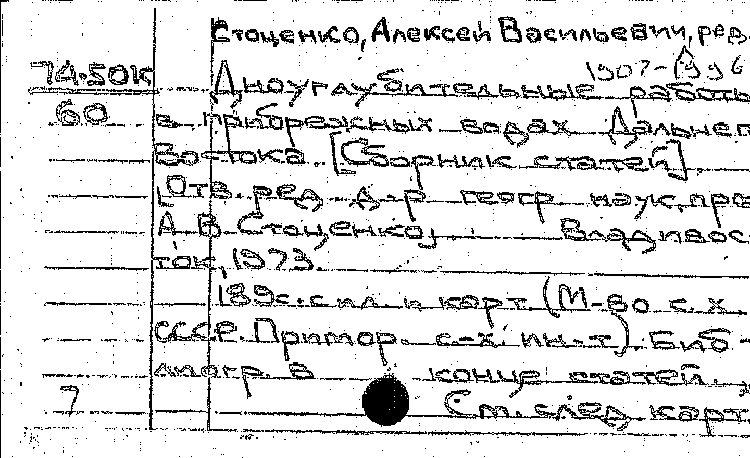 Стоценко, Алексей Васильевич, ред.
1907-1996
74.50к
Дноуглубительные работы
60
в прибрежных водах Дальнег
Востока. [Сборник статей].
[Отв. ред. д-р геогр. наук, про
А В Стоценко]. Владивос-
ток, 1973.
189с. с ил. и карт. (М-во с. х.
СССР. Примор. с-х. ин-т). Биб-
лиогр. в конце статей.
7
См. след карт